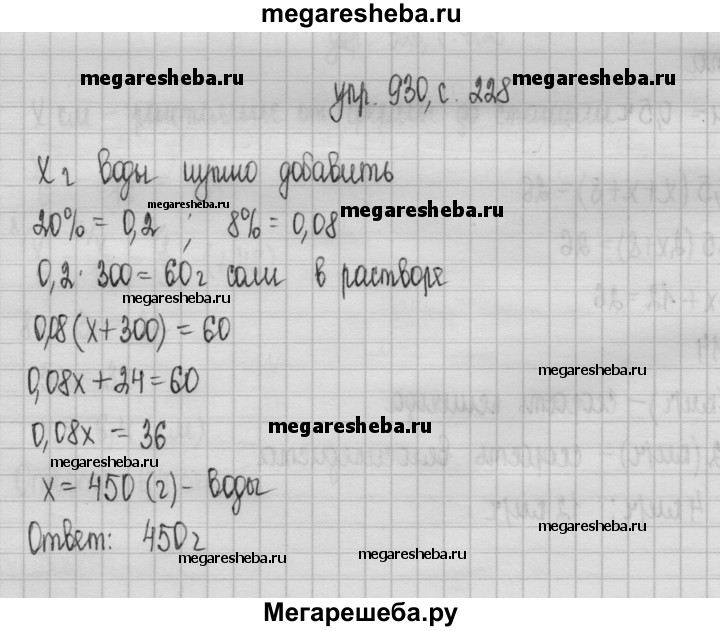 megaresheba.ru
megaresheba.ru
упр. 930, с. 228
megaresheba.ru
x г воды нужно добавить
megaresheba.ru
20% = 0,2 ; 8% = 0,08
megaresheba.ru
0,2 · 300 = 60 г соли в растворе
megaresheba.ru
0,08(x+300) = 60
megaresheba.ru
0,08x + 24 = 60
0,08x = 36
megaresheba.ru
megaresheba.ru
x = 450 (г) - воды
Ответ: 450 г
megaresheba.ru
megaresheba.ru
megaresheba.ru
Мегарешеба.ру